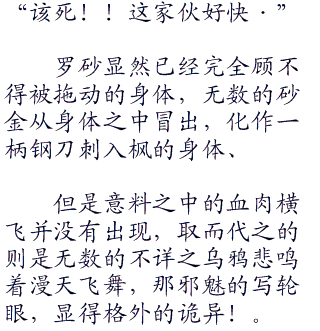 “该死！！这家伙好快·”
罗砂显然已经完全顾不
得被拖动的身体，无数的砂
金从身体之中冒出，化作一
柄钢刀刺入枫的身体、
但是意料之中的血肉横
飞并没有出现，取而代之的
则是无数的不详之乌鸦悲鸣
着漫天飞舞，那邪魅的写轮
眼，显得格外的诡异！。